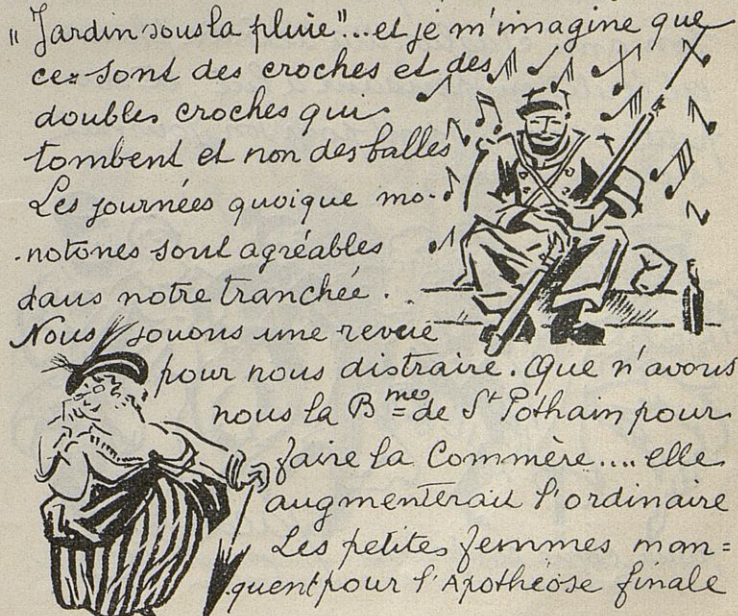 "Jardin sous la pluie"... et je m'imagine que
ce sont des croches et des
doubles croches qui
tombent et non des balles
Les journées quoique mo-
-notones sont agréables
dans notre tranchée...
Nous jouons une revue
pour nous distraire. Que n'avons
nous la Bme de St Pothain pour
faire la Commère.... elle
augmenterait l'ordinaire
Les petites femmes man=
quent pour l'Apothéose finale